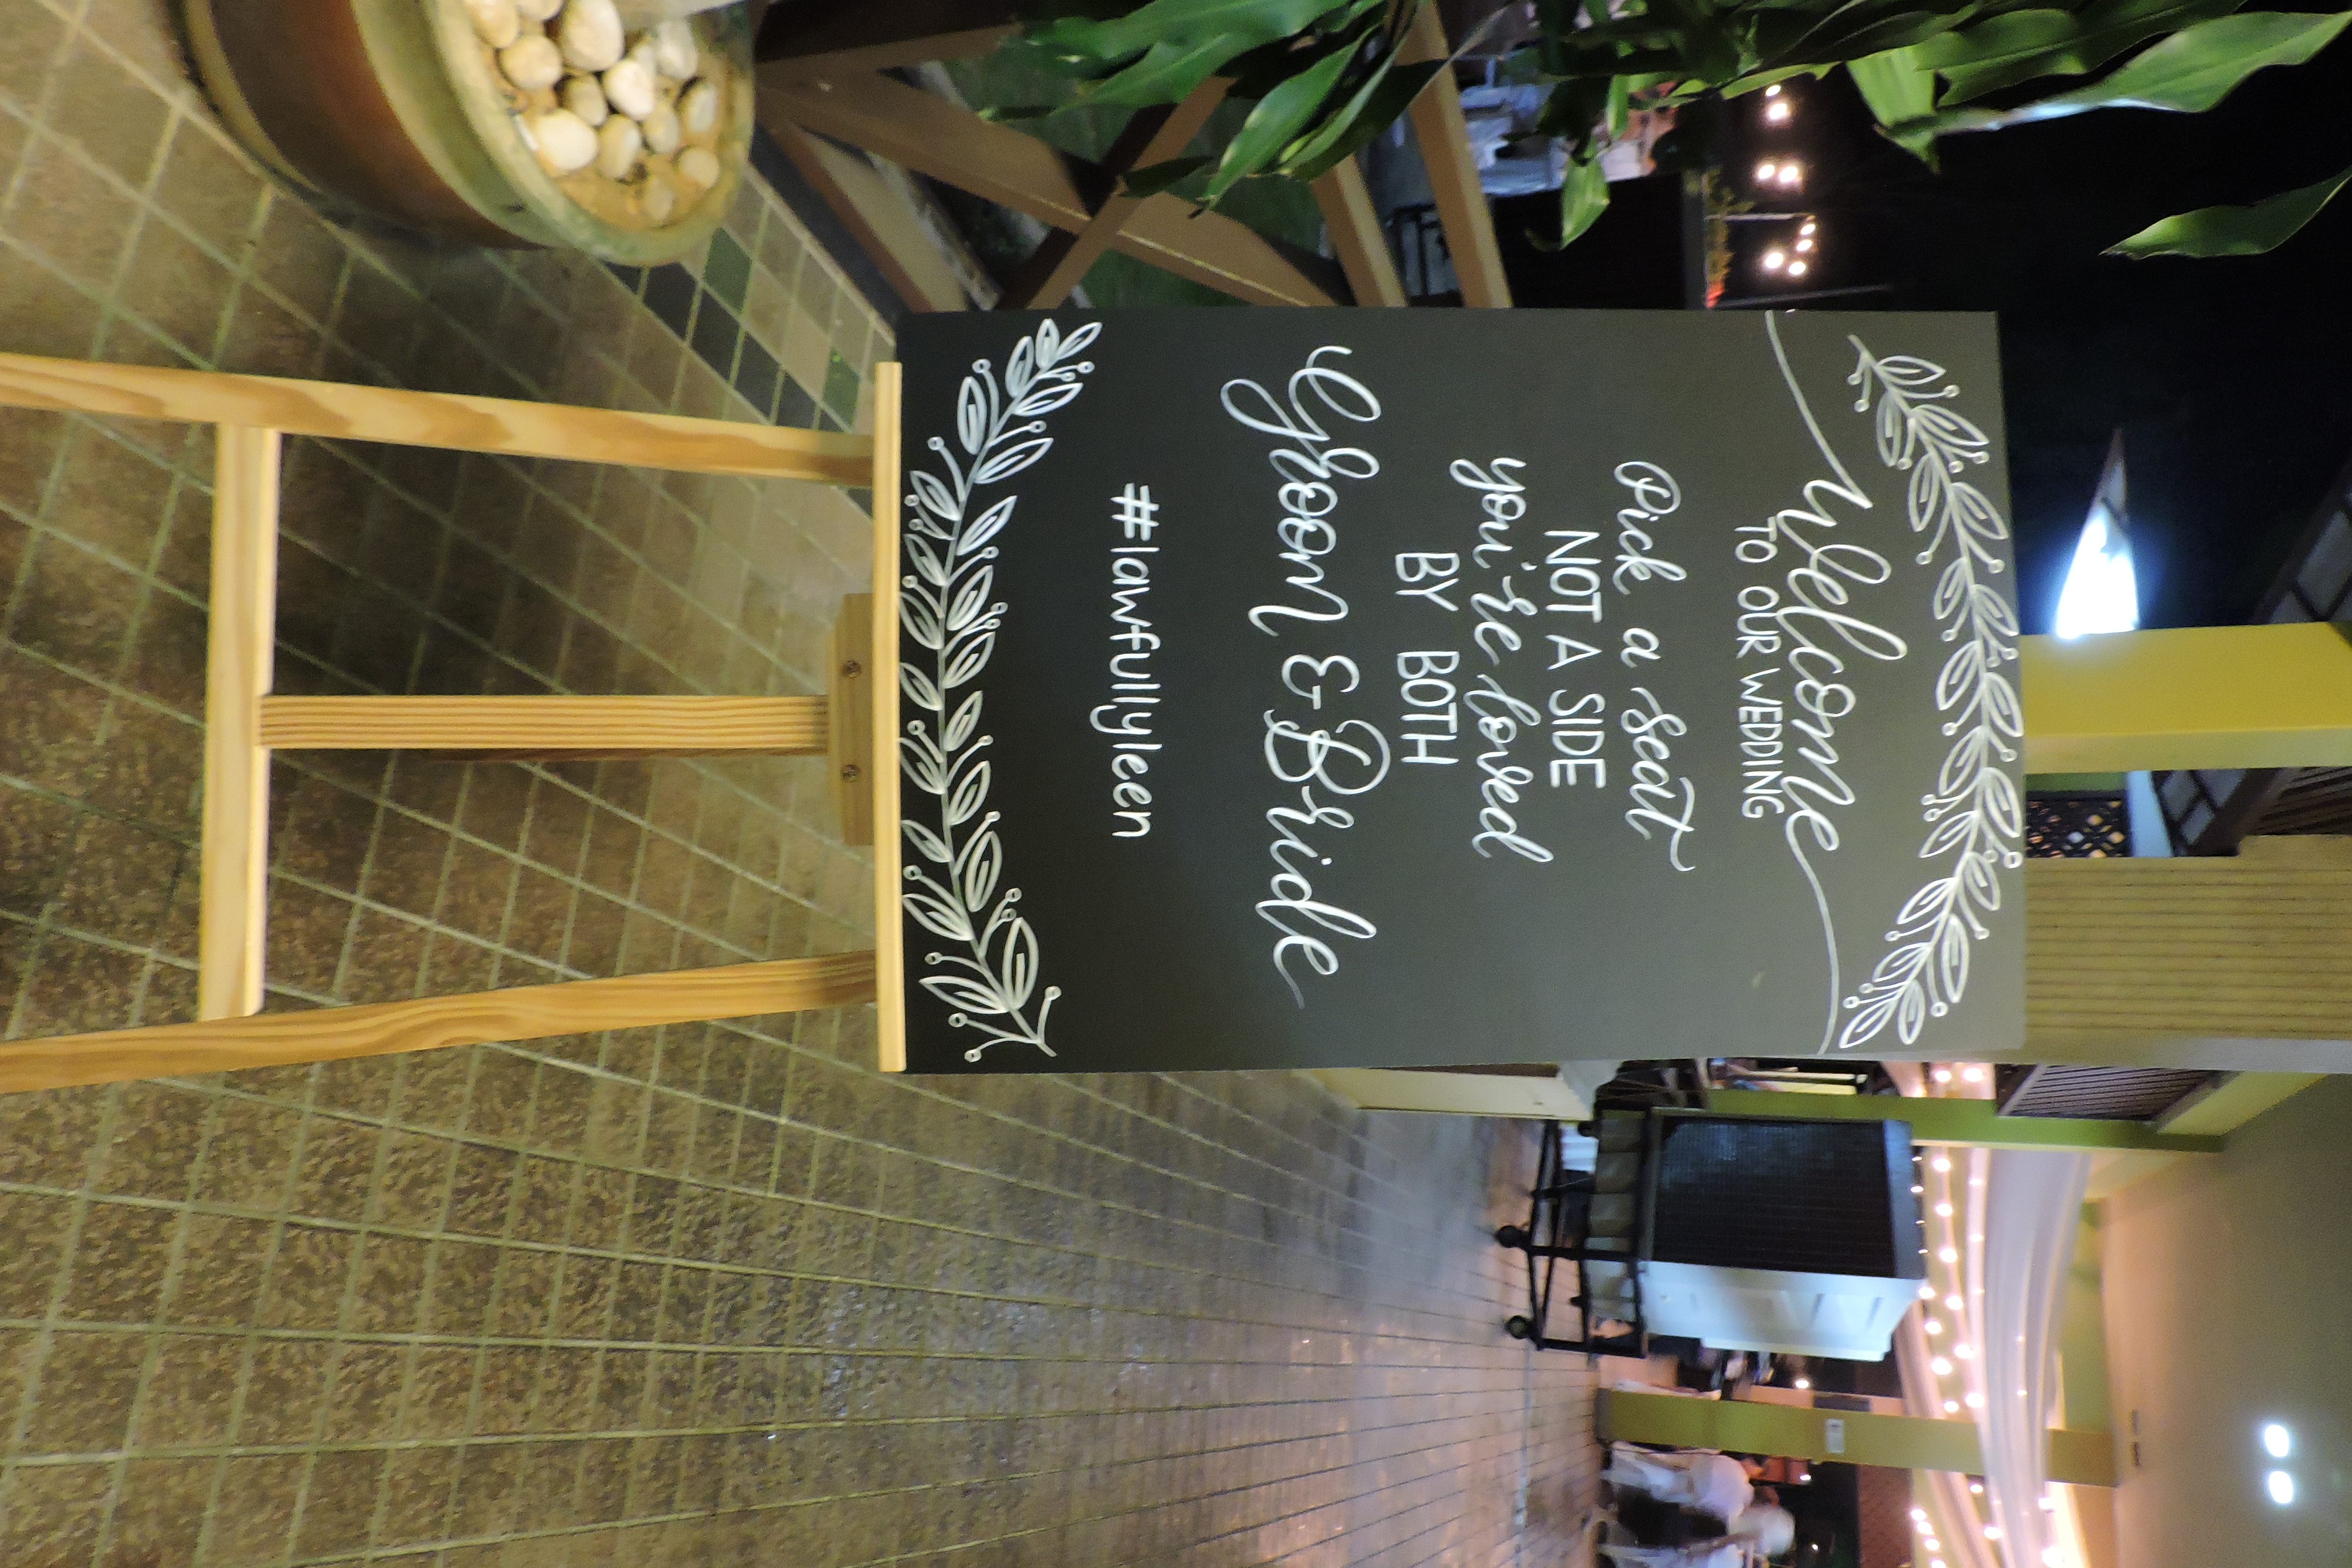 Welcome
TO OUR WEDDING
Pick a seat
NOT A SIDE
you're loved
BY BOTH
Groom & Bride
#lawfullyleen